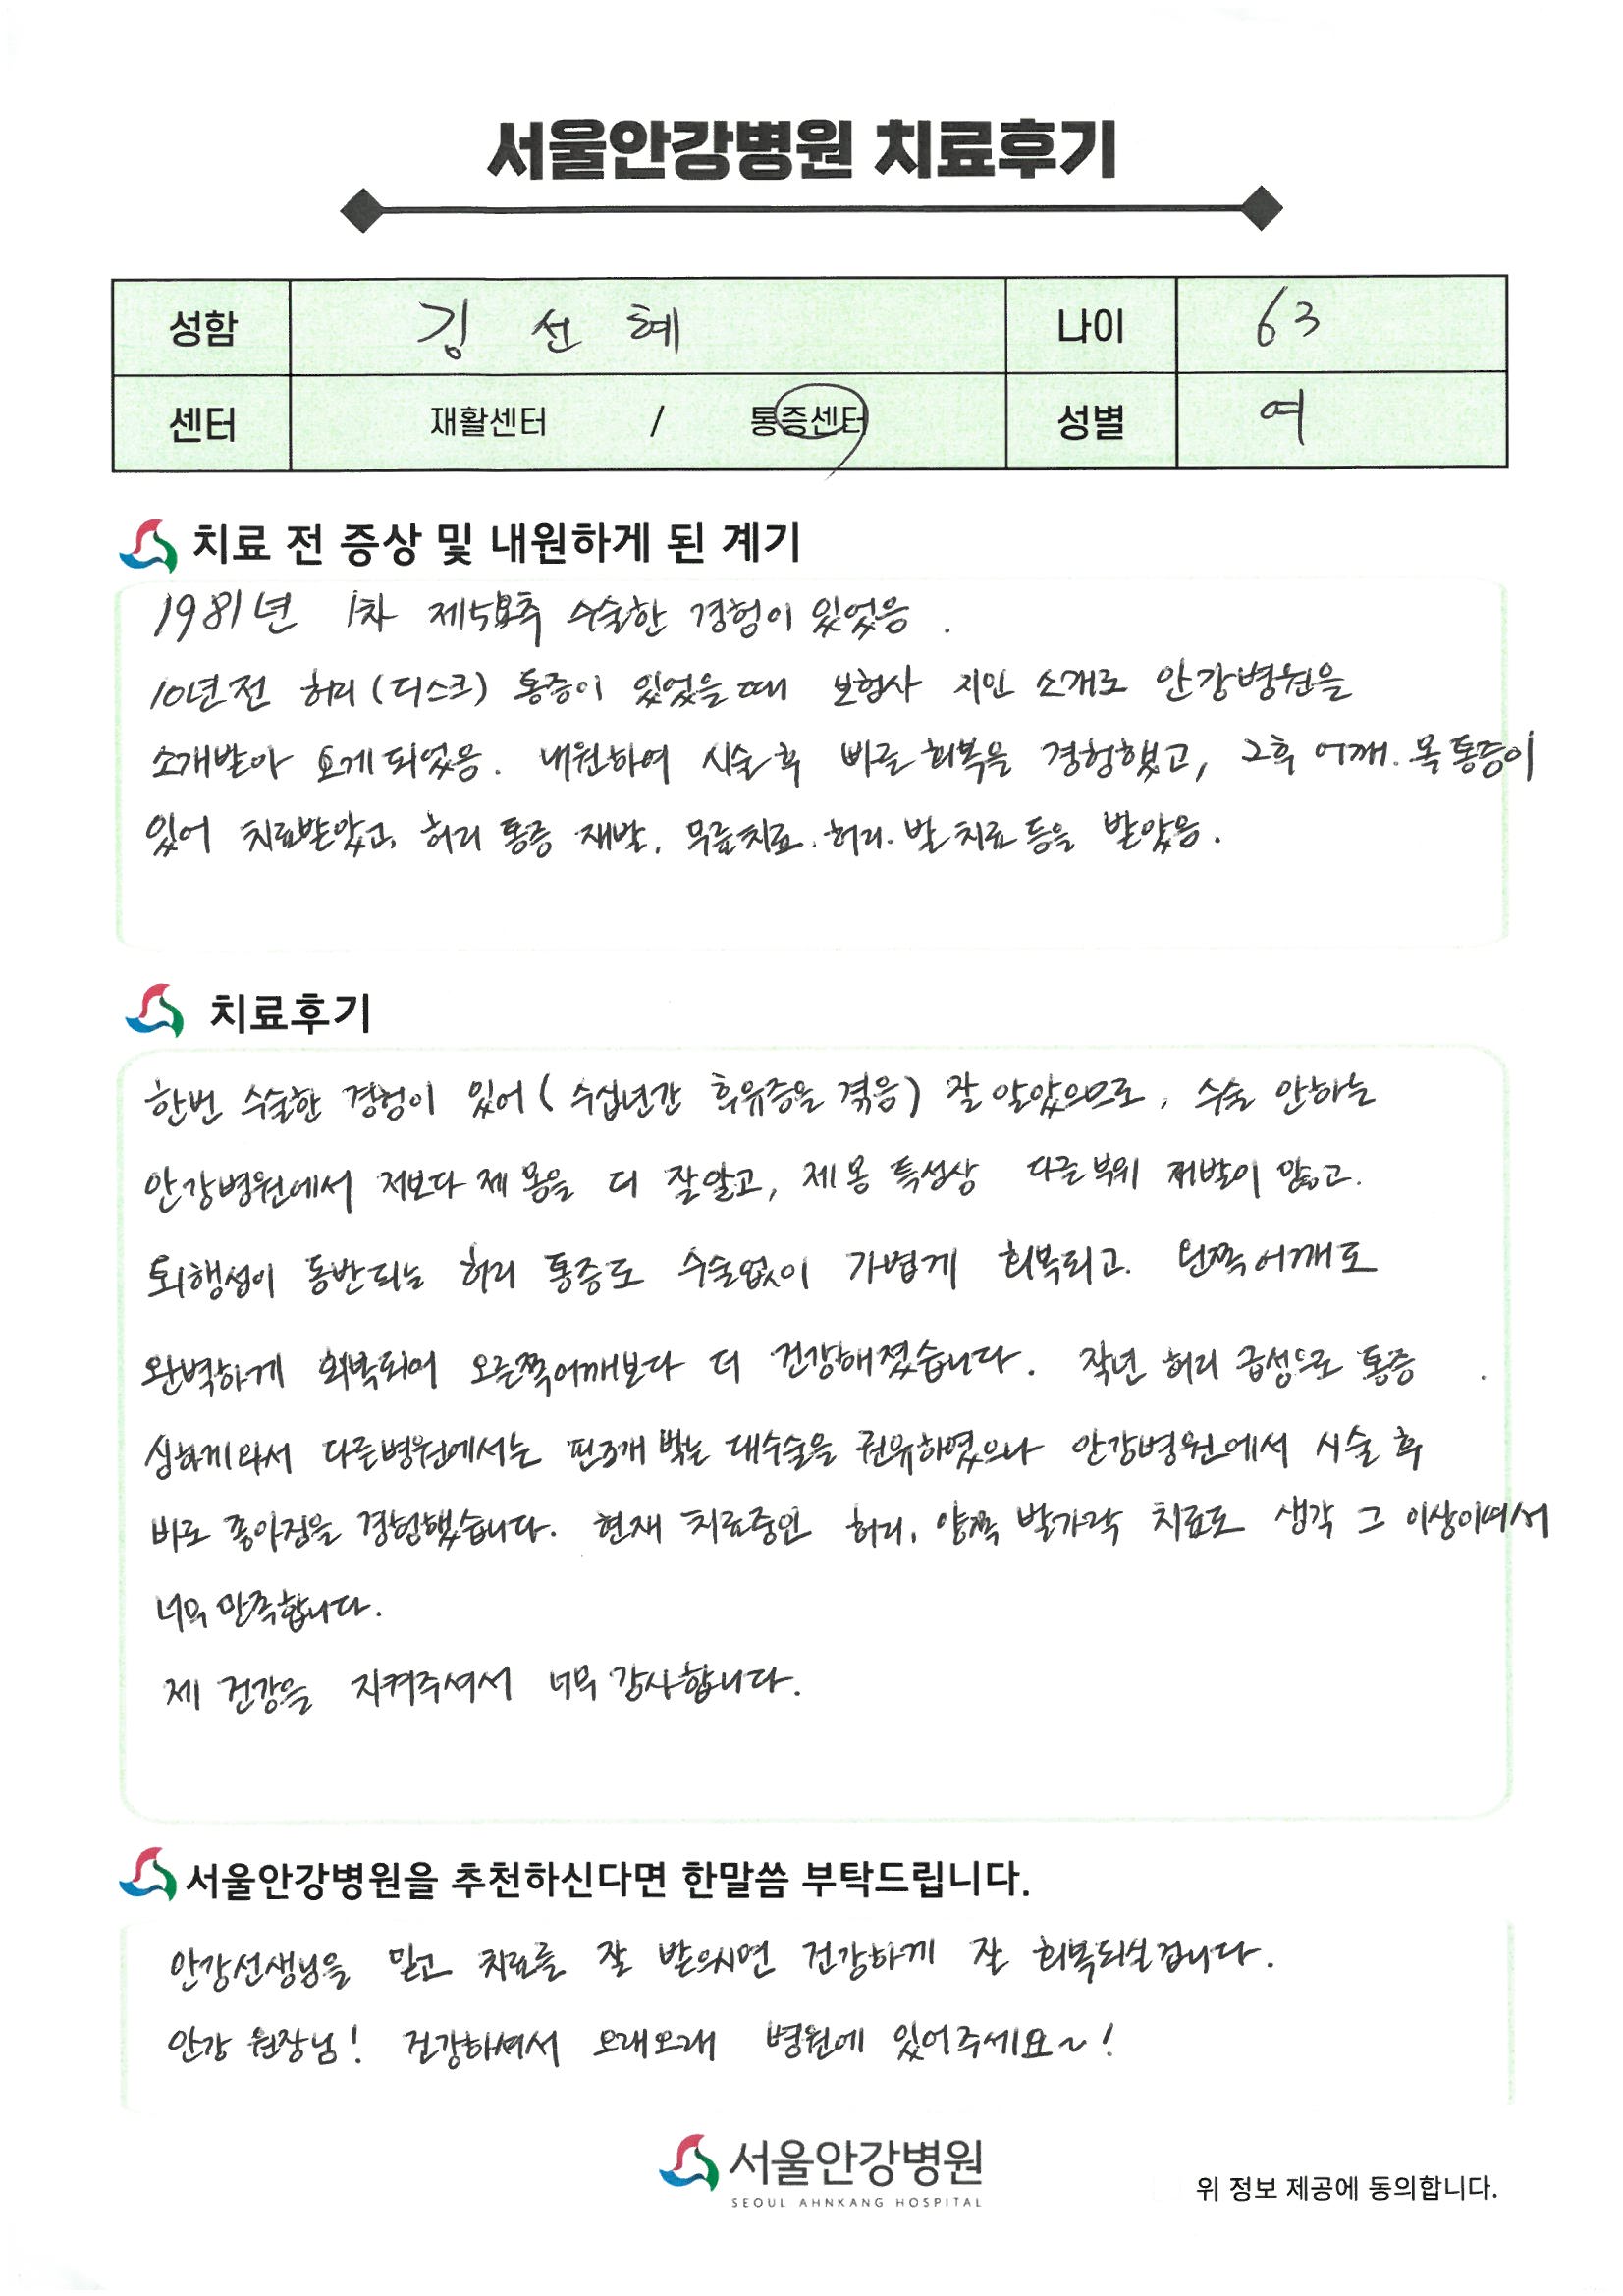 서울안강병원 치료후기
성함 김선혜 나이 63
센터 재활센터 / 통증센터 성별 여
치료 전 증상 및 내원하게 된 계기
1981년 1차 제5요추 수술한 경험이 있었음.
10년전 허리(디스크) 통증이 있었을때 보험사 지인 소개로 안강병원을
소개받아 오게되었음. 내원하여 시술후 빠른 회복을 경험했고, 그후 어깨. 목통증이
있어 치료받았고, 허리 통증 재발, 무릎치료. 허리. 발 치료 등을 받았음.
치료후기
한번 수술한 경험이 있어(수십년간 후유증을 겪음) 잘 알았으므로, 수술 안하는
안강병원에서 저보다 제 몸을 더 잘알고, 제 몸 특성상 다른부위 재발이 많고.
퇴행성이 동반되는 허리 통증도 수술없이 가볍게 회복되고. 왼쪽어깨도
완벽하게 회복되어 오른쪽어깨보다 더 건강해졌습니다. 작년 허리 급성으로 통증
심하게와서 다른병원에서는 핀3개 박는 대수술을 권유하였으나 안강병원에서 시술 후
바로 좋아짐을 경험했습니다. 현재 치료중인 허리, 양쪽 발가락 치료도 생각 그 이상이여서
너무 만족합니다.
제 건강을 지켜주셔서 너무 감사합니다.
서울안강병원을 추천하신다면 한말씀 부탁드립니다.
안강선생님을 믿고 치료를 잘 받으시면 건강하게 잘 회복되실겁니다.
안강 원장님! 건강하셔서 오래오래 병원에 있어주세요~!
서울안강병원
SEOUL AHNKANG HOSPITAL
위 정보 제공에 동의합니다.